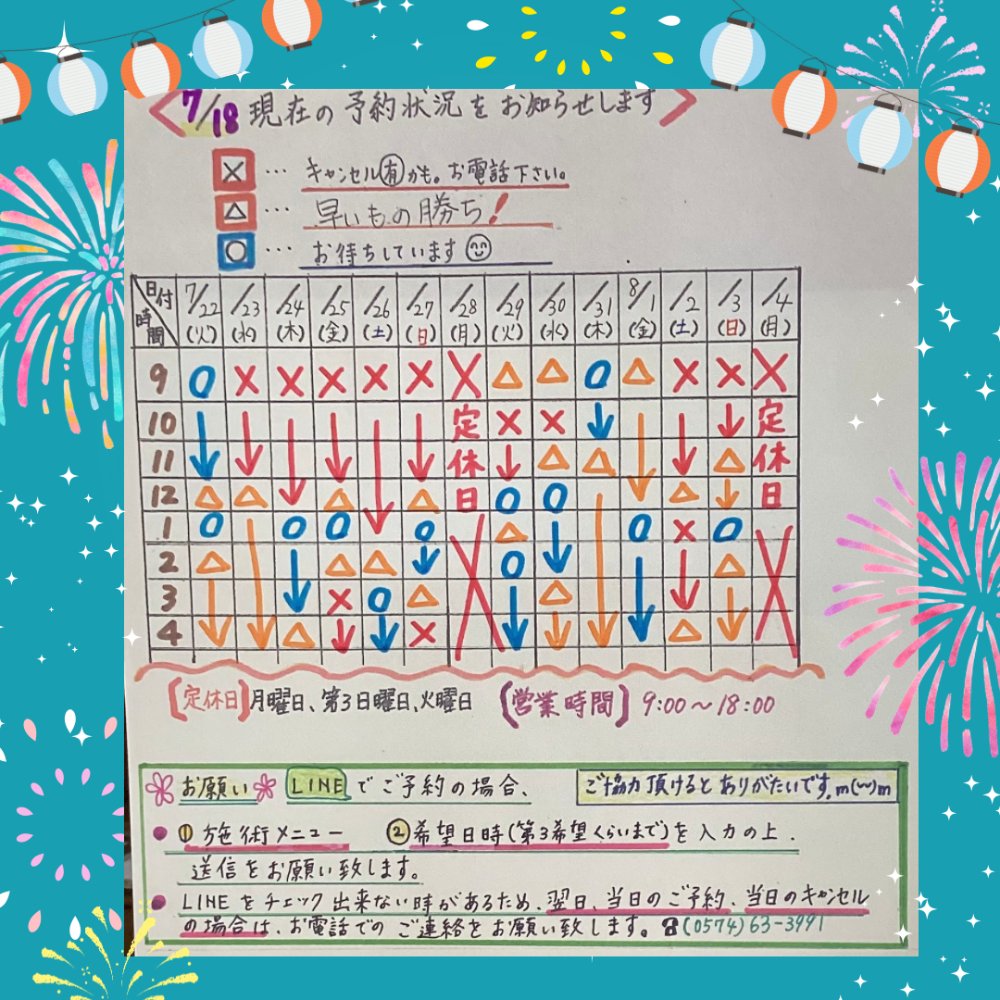 7/18 現在の予約状況をお知らせします
× … キャンセル㊒かも。お電話下さい。
△ … 早いもの勝ち!
○ … お待ちしています
日付 7/22 /23 /24 /25 /26 /27 /28 /29 /30 /31 8/1 /2 /3 /4
時間 (火) (水) (木) (金) (土) (日) (月) (火) (水) (木) (金) (土) (日) (月)
9 ○ × × × × × × △ △ ○ △ × × ×
10 ↓ ↓ ↓ ↓ ↓ ↓ 定 × × ↓ ↓ ↓ ↓ 定
11 休 ↓ △ △ △ 休
12 △ △ △ △ 日 ○ ○ ↓ △ ↓ 日
1 ○ ↓ ○ ○ ○ × △ ↓ ○ × ○ ×
2 △ ↓ △ △ ↓ ○ ↓ ↓ △
3 ↓ × ○ △ ↓ △ ↓
4 △ ↓ ↓ × ↓ △
[定休日] 月曜日、第3日曜日、火曜日 [営業時間] 9:00〜18:00
お願い LINEでご予約の場合、 ご協力頂けるとありがたいです。m(__)m
● ① 施術メニュー ② 希望日時(第3希望くらいまで)を入力の上、
送信をお願い致します。
● LINEをチェック出来ない時があるため、翌日、当日のご予約、当日のキャンセル
の場合は、お電話でのご連絡をお願い致します。☎(0574)63-3991